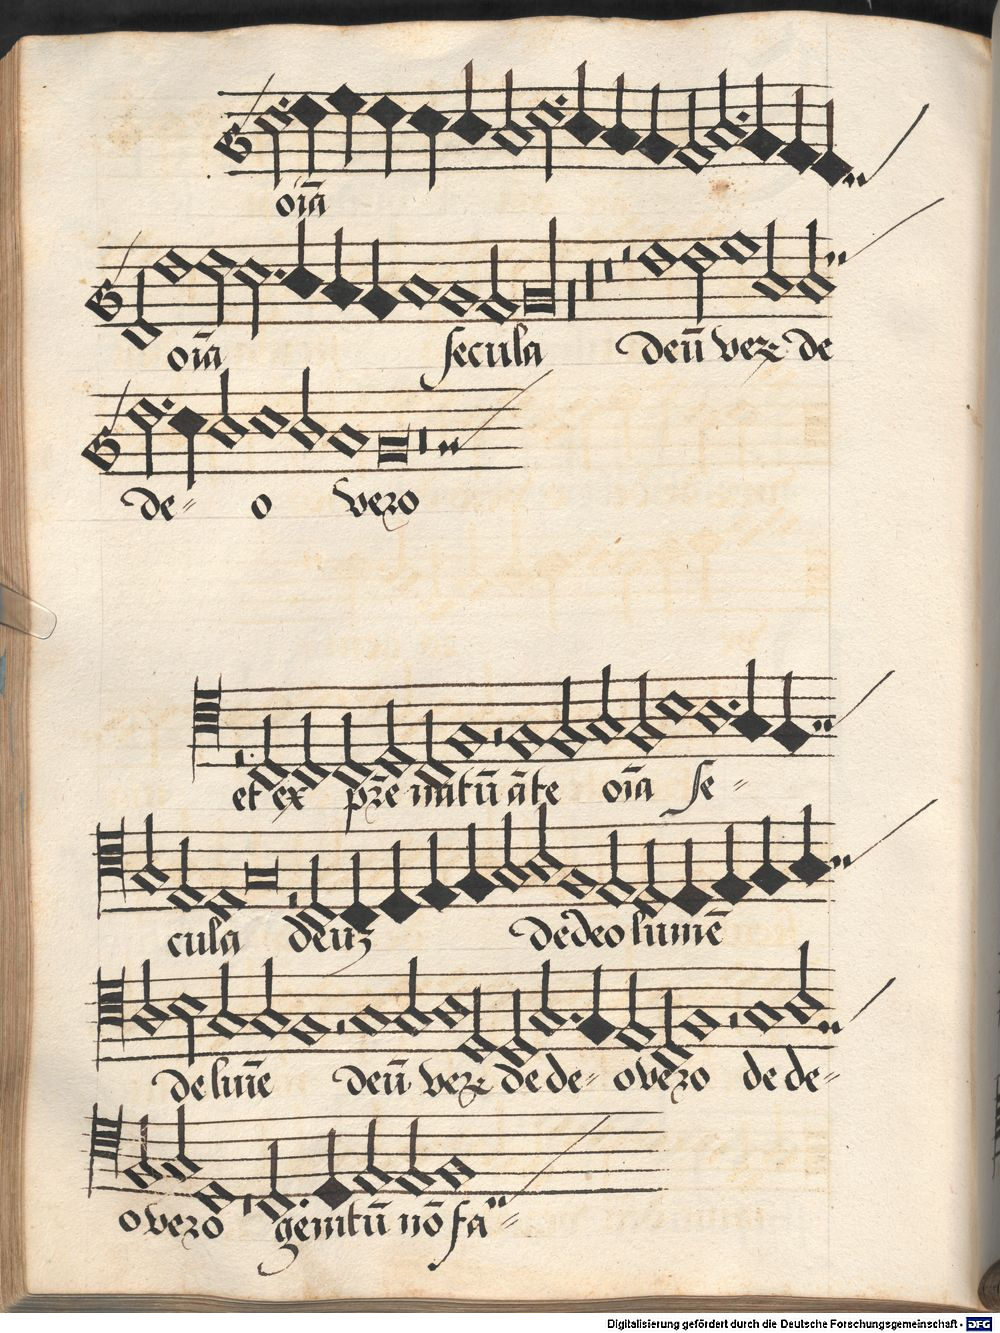 oīa
oīa secula deū veƶ de
de- o veƶo
et ex pr̄e natū āte oīa se-
cula deuz de deo lumē
de lūīe deū veƶ de de- o veƶo de de-
o veƶo genitū nō fa-
Digitalisierung gefördert durch die Deutsche Forschungsgemeinschaft - DFG